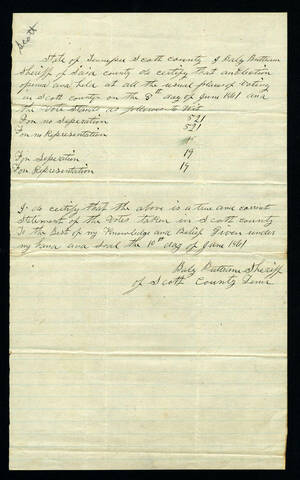 Scott
State of Tennessee Scott County I Baly Buttram
Sheriff of Said county do certify that an Election
opened and held at all the usual places of Voting
in Scott county on the 8th day of June 1861 and
the Vote Stands as follows to Wit
For no Seperation 521
For no Representation 521
For Seperation 19
For Representation 19
I do certify that the above is a true and correct
Statement of the Votes taken in Scott county
To the Best of my Knowledge and Belief Given under
my hand and Seal the 10th day of June 1861
Baly Buttram Sheriff
of Scott County Tenn